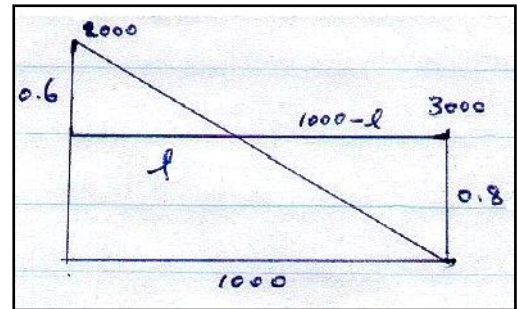 2000
0.6
1000-l
3000
l
0.8
1000